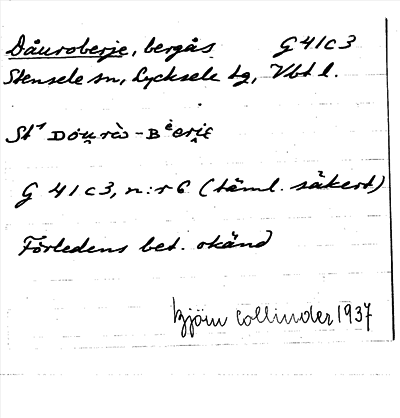 Dåuroberje, bergås G41c3
Stensele sn, Lycksele tg, Vbt l.
St¹ Dou̯rò-Bèeri̯e
G 41c3, n:r 6 (täml. säkert)
Förledens bet. okänd
Björn Collinder 1937